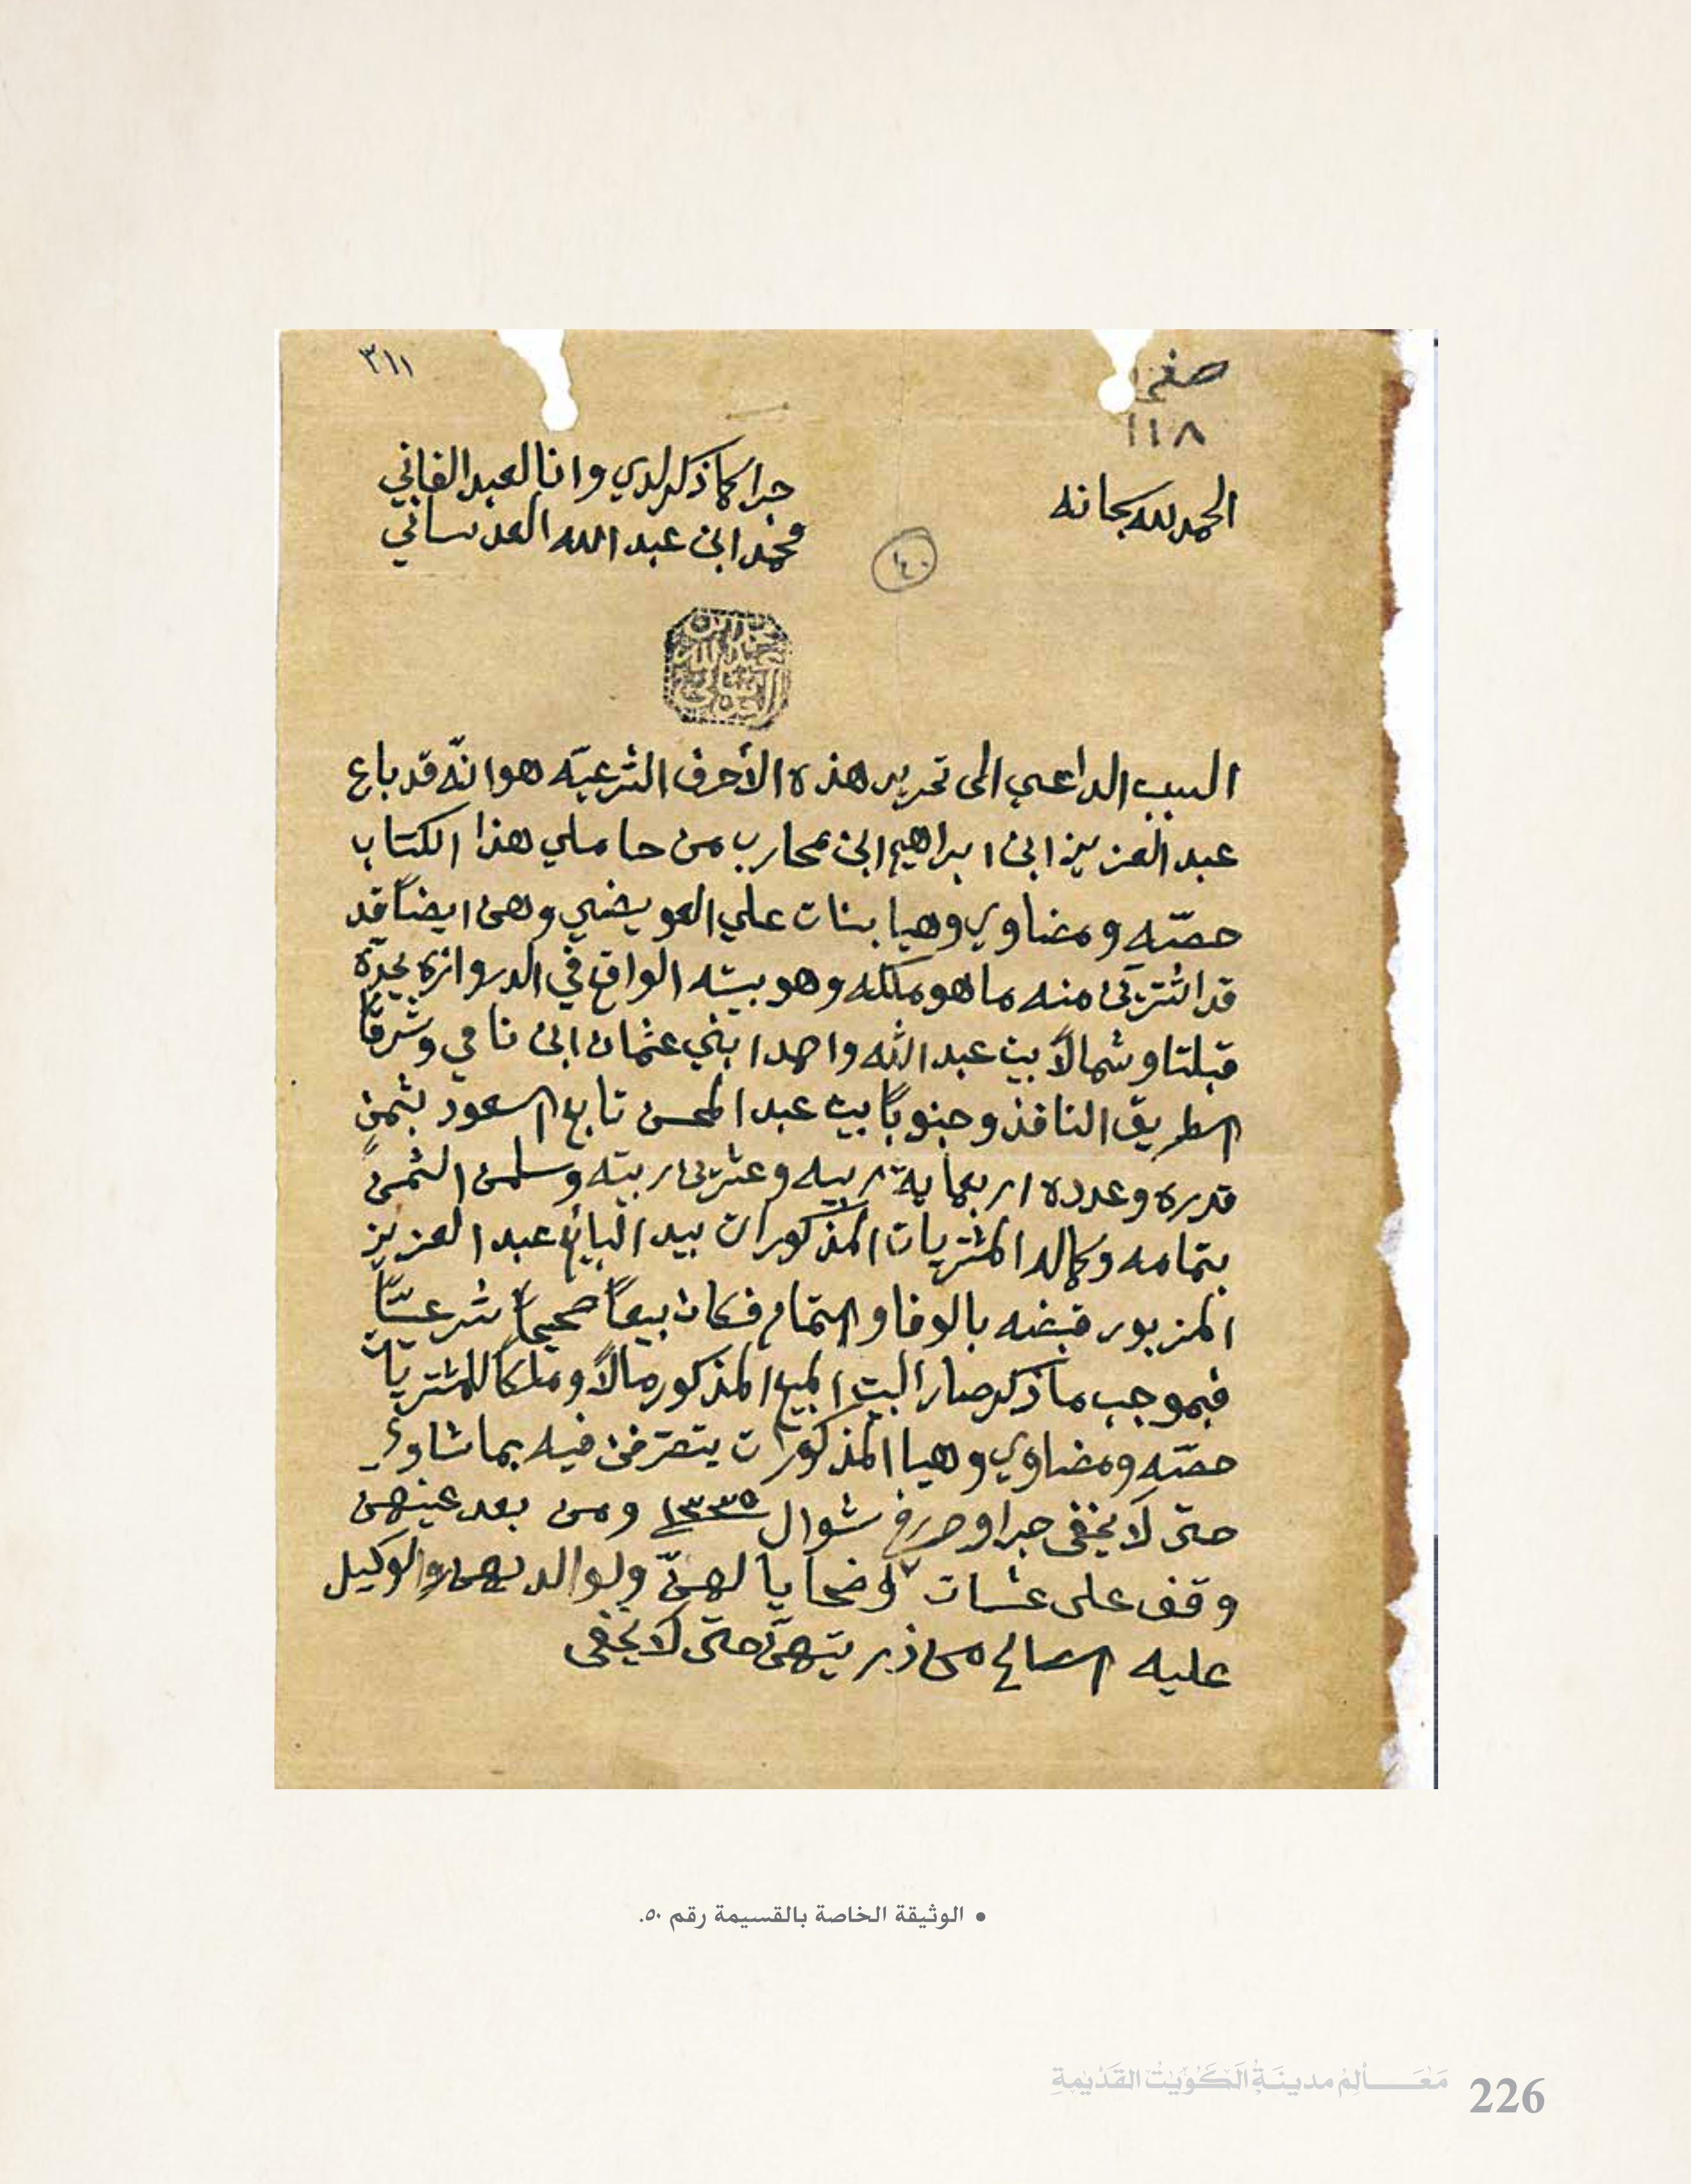 ٣١١
١١٨
الحمد لله سبحانه
جرا كما ذكر لدي وانا العبد الفاني
محمد ابن عبد الله العدساني
١٤٠
محمد ابن عبد الله العدساني
السبب الداعي الى تحرير هذه الأحرف الشرعيّه هو انّه قد باع
عبد العزيز ابن ابراهيم ابن محارب من حاملي هذا الكتاب
حصّه ومضاوي وهيا بنات علي العويضي وهن ايضاً قد
قد اشترين منه ما هو ملكه وهو بيته الواقع في الدروازه يحدّه
قبلتا وشمالاً بيت عبد الله واحمد ابني عثمان ابن نامي وشرقاً
الطريق النافذ وجنوباً بيت عبد المحسن تابع السعود بثمنٍ
قدره وعدده اربعماية ربيه وعشرين ربيّه وسلمن الثمن
بتمامه وكماله المشتريات المذكورات بيد البايع عبد العزيز
المزبور قبضه بالوفا والتمام فكان بيعاً صحيحاً شرعيّاً
فبموجب ما ذكر صار البيت المبيع المذكور مالاً وملكاً للمشتريات
حصّه ومضاوي وهيا المذكورات يتصرّفن فيه بما شاون
حتى لا يخفى جرا وحرر في شوال ١٣٣٥ ومن بعد عينهن
وقف على عشيات وضحايا لهنّ ولوالديهن والوكيل
عليه الصالح من ذريتهنّ حتى لا يخفى
• الوثيقة الخاصة بالقسيمة رقم ٥٠.
مَعَالِمُ مدينَةِ الكُوَيْت القَدْيمةِ
226